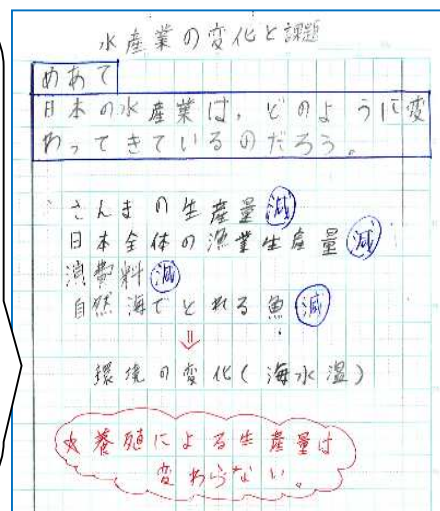 水産業の変化と課題
めあて
日本の水産業は、どのように変
わってきているのだろう。
さんまの生産量 減
日本全体の漁業生産量 減
消費料 減
自然 海でとれる魚 減
⇓
環境の変化(海水温)
☆養殖による生産量は
変わらない。